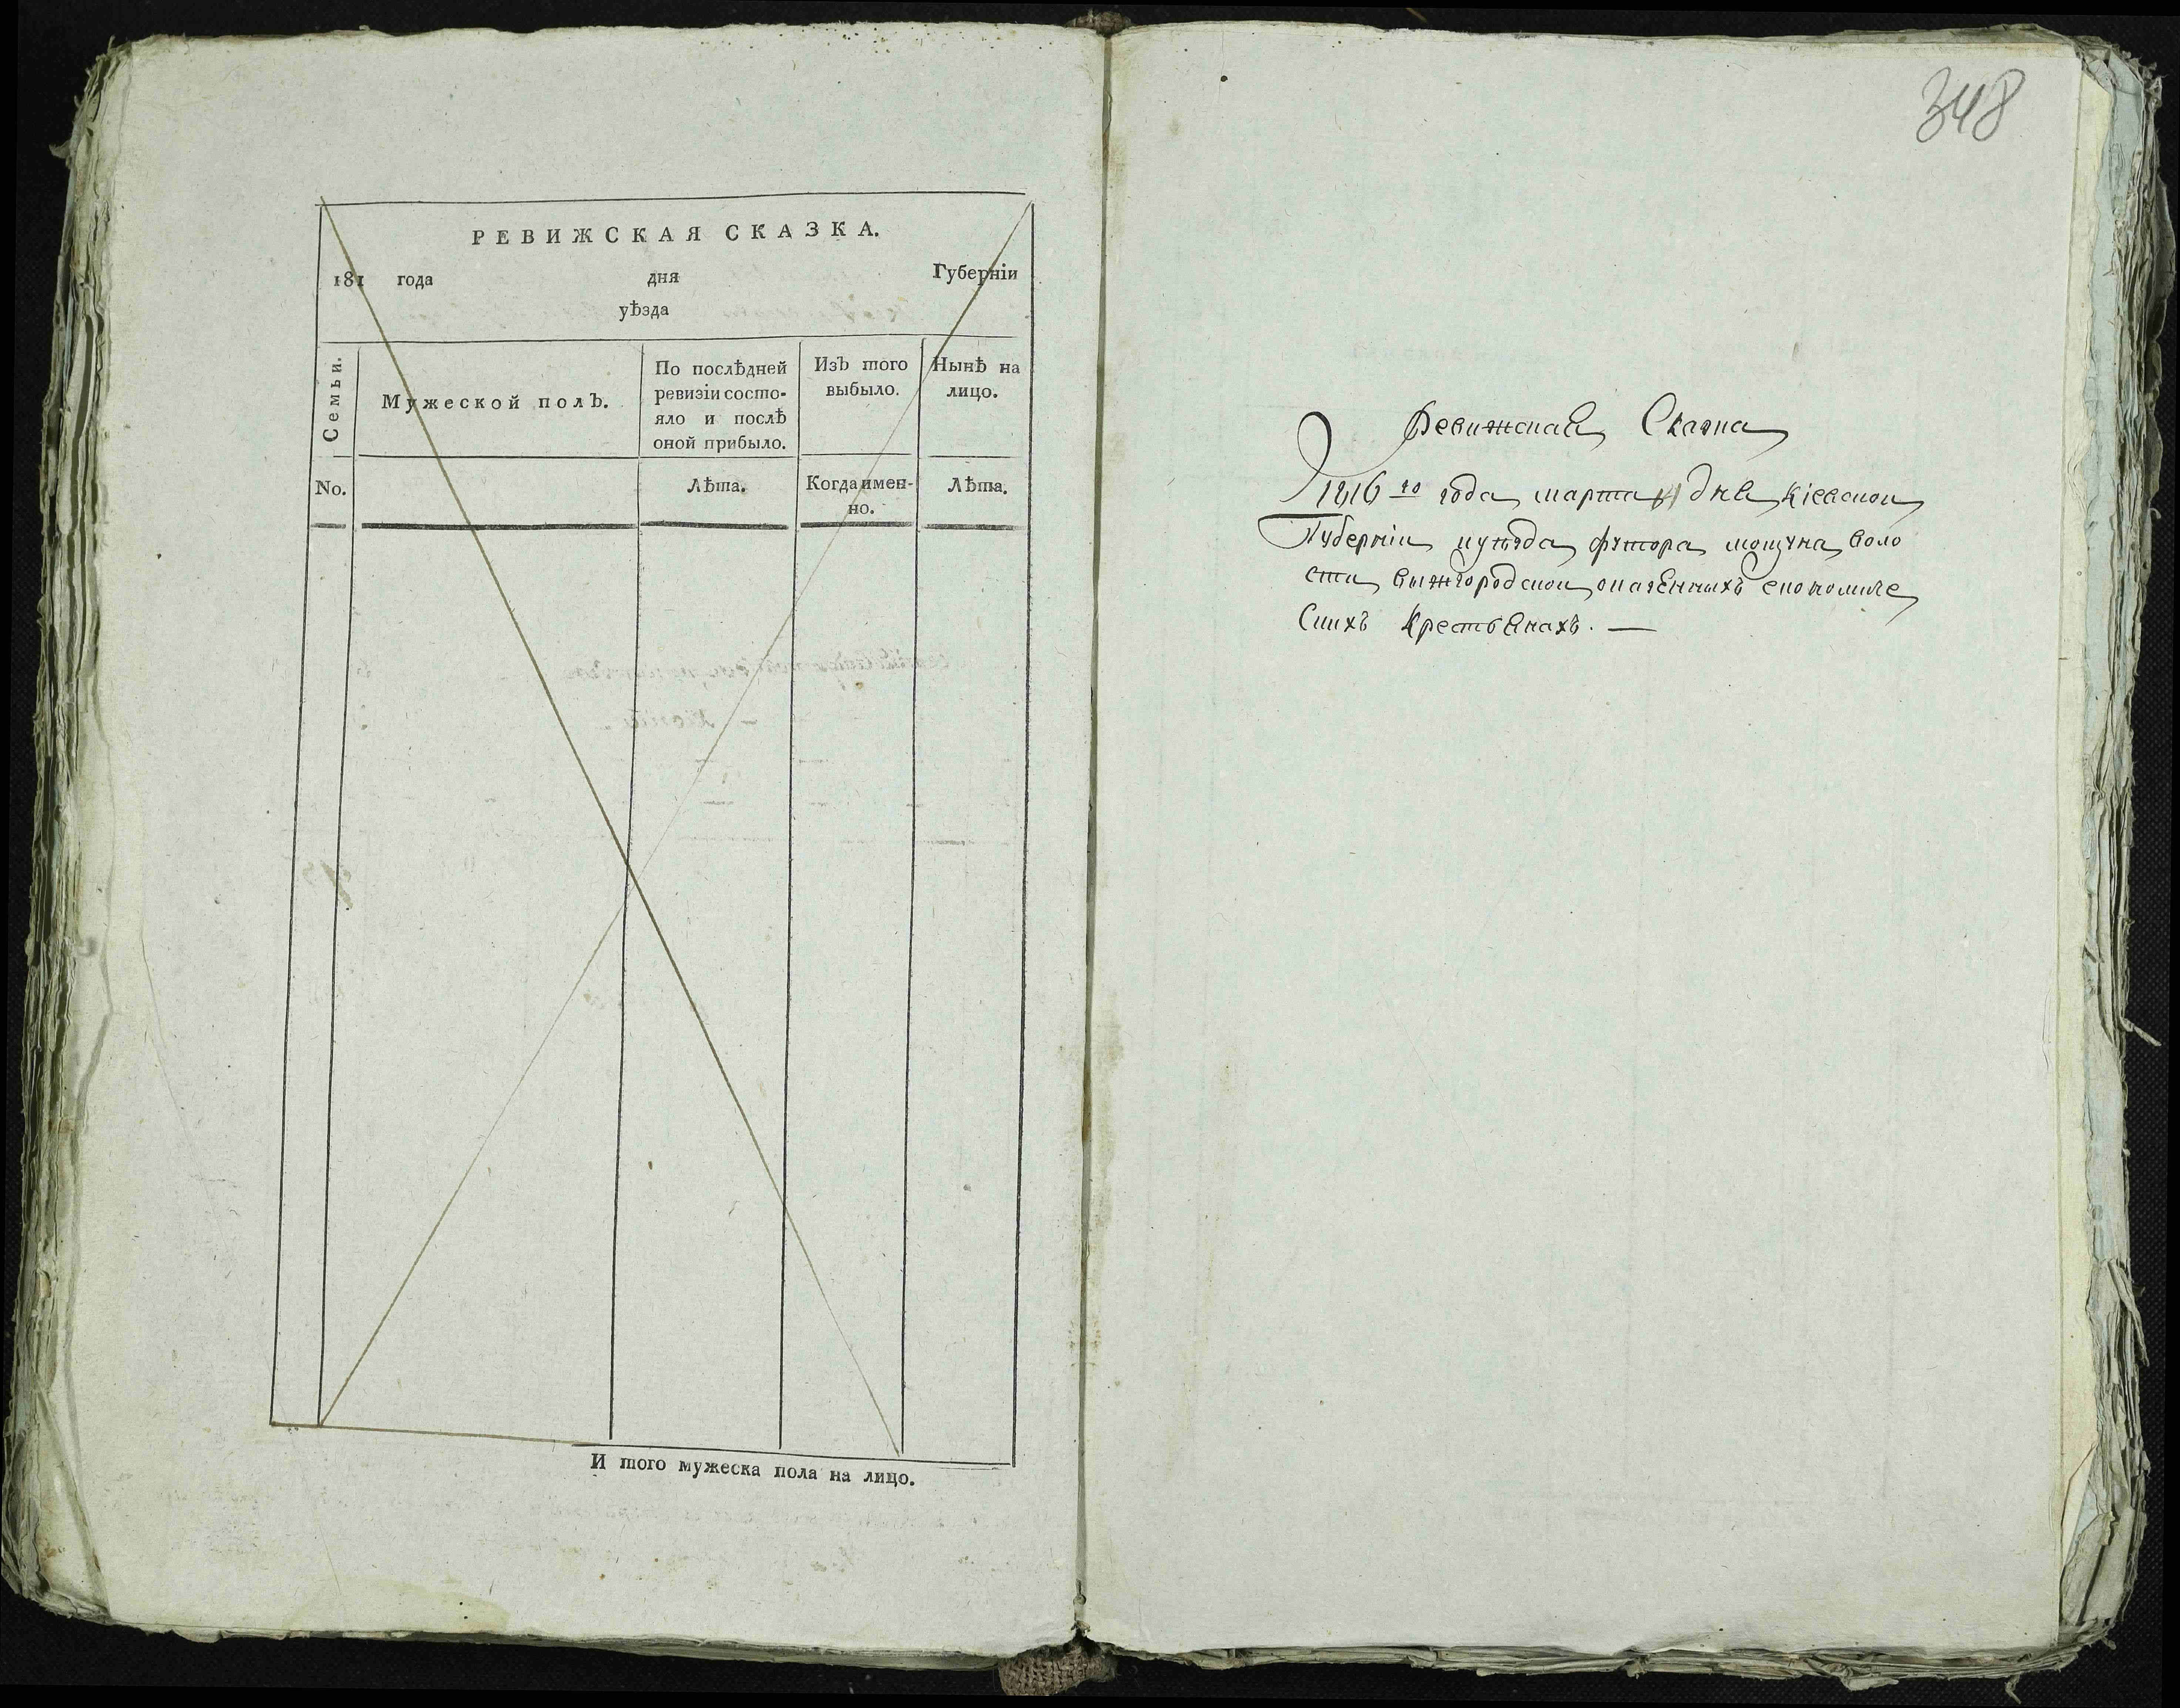 РЕВИЖСКАЯ СКАЗКА.
181 года дня Губерніи
уѣзда
Семьи.
Мужеской полъ.
По послѣдней
ревизіи состо-
яло и послѣ
оной прибыло.
Изъ того
выбыло.
Нынѣ на
лицо.
No.
Лѣта.
Когда имен-
но.
Лѣта.
И того мужеска пола на лицо.
348
Ревижская Сказка
1816го года марта дня кіевской
Губерніи иуѣзда футора мощуна воло
сти вышгородской оказенныхъ економиче
Скихъ Крестьянахъ. —